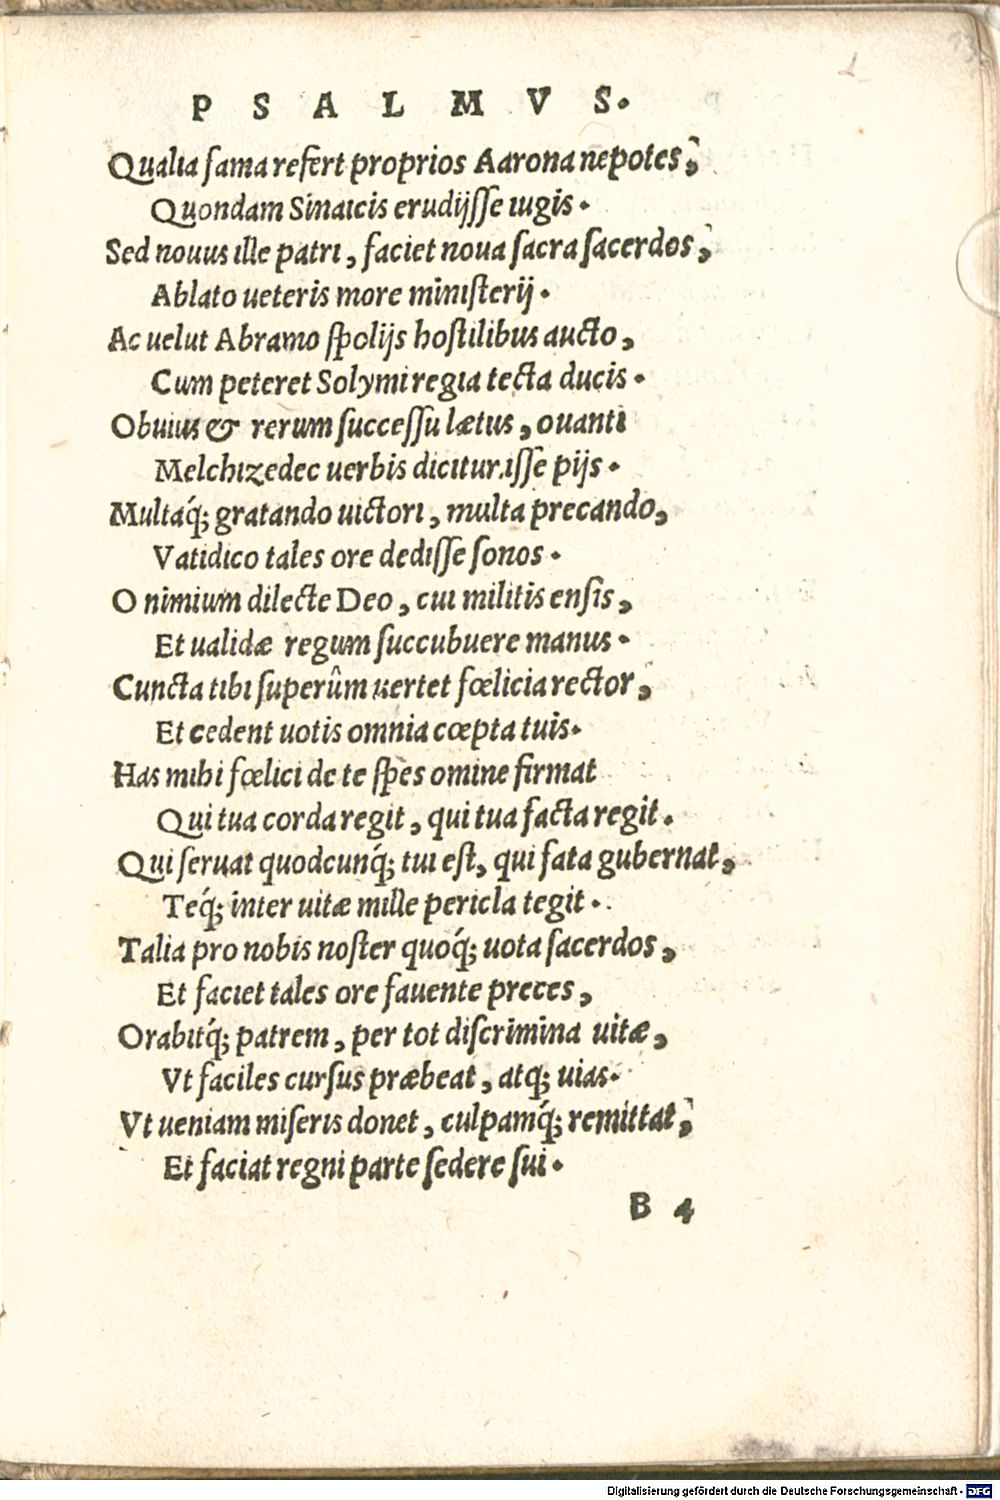 PSALMVS.
Qualia fama refert proprios Aarona nepotes,
Quondam Sinaicis erudijsse iugis.
Sed nouus ille patri, faciet noua sacra sacerdos,
Ablato ueteris more ministerij.
Ac uelut Abramo spolijs hostilibus aucto,
Cum peteret Solymi regia tecta ducis.
Obuius & rerum successu lætus, ouanti
Melchizedec uerbis dicitur isse pijs.
Multaq́; gratando uictori, multa precando,
Vatidico tales ore dedisse sonos.
O nimium dilecte Deo, cui militis ensis,
Et ualidæ regum succubuere manus.
Cuncta tibi superûm uertet fœlicia rector,
Et cedent uotis omnia cœpta tuis.
Has mihi fœlici de te spes omine firmat
Qui tua corda regit, qui tua facta regit.
Qui seruat quodcunq́; tui est, qui fata gubernat,
Teq́; inter uitæ mille pericla tegit.
Talia pro nobis noster quoq́; uota sacerdos,
Et faciet tales ore fauente preces,
Orabitq́; patrem, per tot discrimina uitæ,
Vt faciles cursus præbeat, atq; uias.
Vt ueniam miseris donet, culpamq́; remittat,
Et faciat regni parte sedere sui.
B 4
Digitalisierung gefördert durch die Deutsche Forschungsgemeinschaft - DFG